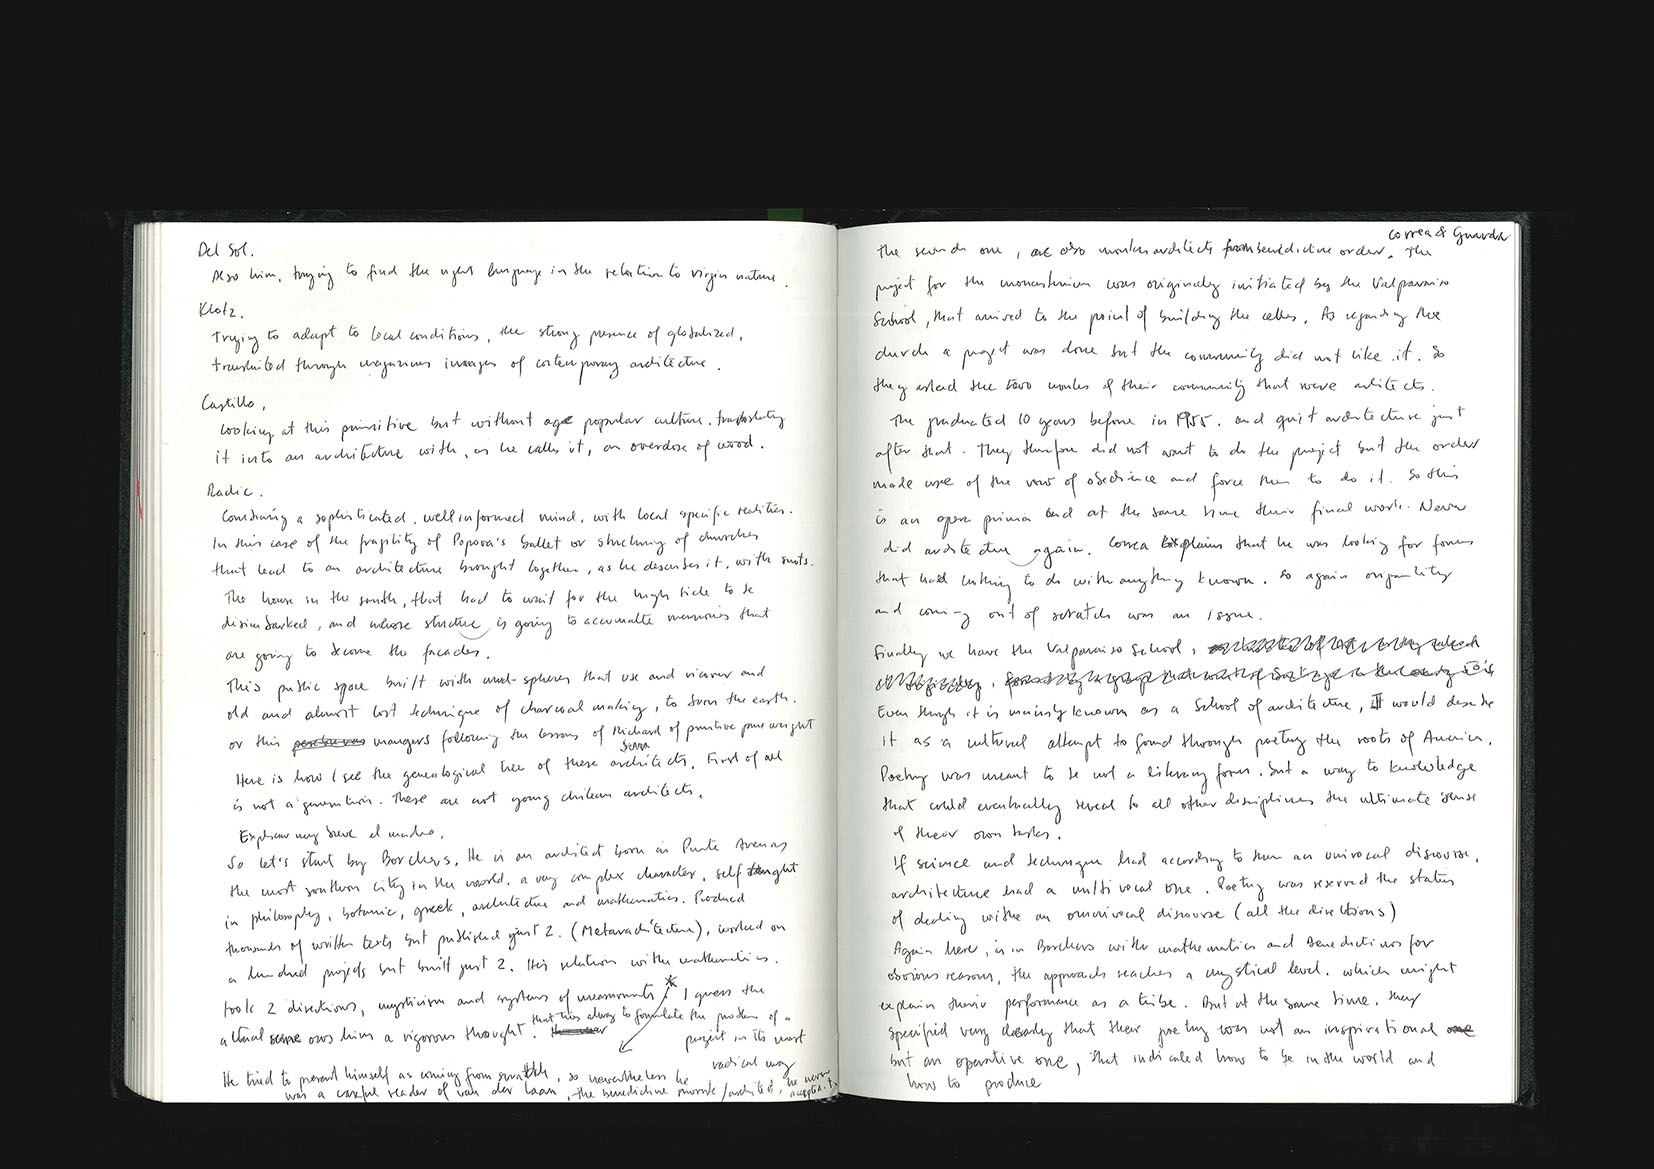 Del Sol.
Also him, trying to find the right language in the relation to virgin nature.
Klotz.
Trying to adapt to local conditions, the strong presence of globalized,
transmited through magazines images of contemporary architecture.
Castillo,
looking at this primitive but without age popular culture. translating
it into an architecture with, as he calls it, an overdose of wood.
Radic.
Combining a sophisticated, well informed mind, with local specific realities.
In this case of the fragility of Popova's ballet or structuring of churches
that lead to an architecture brought together, as he describes it, with knots.
The house in the south, that had to wait for the high tide to be
disimbarked, and whose structure is going to accumulate memories that
are going to become the facades.
This public space built with mud-spheres that use and
old and almost lost technique of charcoal making, to burn the earth.
or this mangers following the lessons of Richard Serra of primitive pure weight
Here is how I see the genealogical tree of these architects. First of all
is not a generation. These are not young chilean architects.
Explicar muy breve el cuadro.
So let's start by Borchers. He is an architect born in Punta Arenas
the most southern city in the world. a very complex character, self taught
in philosophy, botanic, greek, architecture and mathematics. Produced
thousands of written texts but published just 2. (Metarchitecture), worked on
a hundred projects but built just 2. His relation with mathematics.
took 2 directions, mysticism and systems of measurements * I guess the
actual ows him a vigorous thought. that tries always to formulate the problem of a
project in its most
radical way
He tried to present himself as coming from scratch, so nevertheless he
was a careful reader of van der Laan, the benedictine monk/architect, he never
accepted it.
Correa & Guarda
The seconds one, are also monks architects from benedictine order. The
project for the monasterium was originaly initiated by the Valparaiso
School, that arrived to the point of building the celles. As regarding the
church a project was done but the community did not like it. So
they asked the two monks of their community that were architects.
The graduated 10 years before in 1955. and quit architecture just
after that. They therefore did not want to do the project but the order
made use of the vow of obedience and force them to do it. So this
is an opera prima and at the same time their final work. Never
did architecture again. Correa explains that he was looking for forms
that had nothing to do with anything known. so again originality
and coming out of scratch was an issue.
Finally we have the Valparaiso School,
Even though it is mainly known as a School of architecture, I would describe
it as a cultural attempt to found through poetry the roots of America.
Poetry was meant to be not a literary form, but a way to knowledge
that could eventually reveal to all other disciplines the ultimate sense
of their own tasks.
If science and technique had according to them an univocal discourse,
architecture had a multivocal one. Poetry was reserved the status
of dealing withe an omnivocal discourse (all the directions)
Again here, as in Borchers with mathematics and Benedictines for
obvious reasons, the approach reaches a mystical level. which might
explain their performance as a tribe. But at the same time, they
specified very clearly that their poetry was not an inspirational one
but an operative one, that indicated how to be in the world and
how to produce